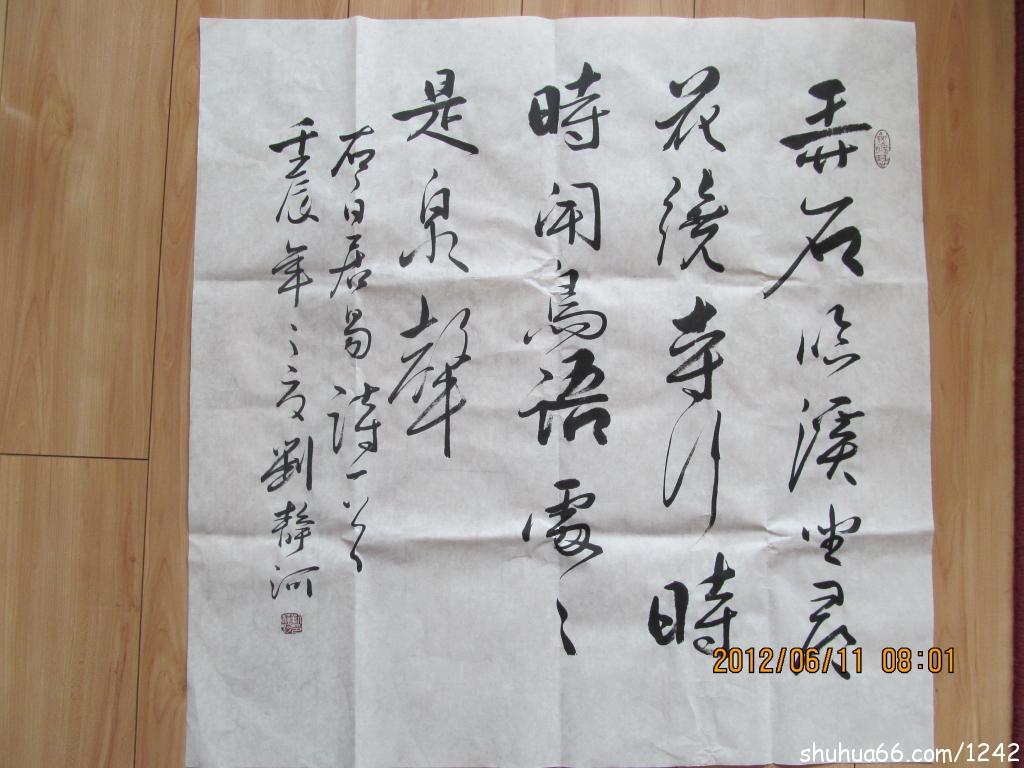 弄石臨溪坐尋
花繞寺行時
時聞鳥語處々
是泉聲
右白居易詩一首
壬辰年之夏劉靜河
2012/06/11 08:01
shuhua66.com/1242